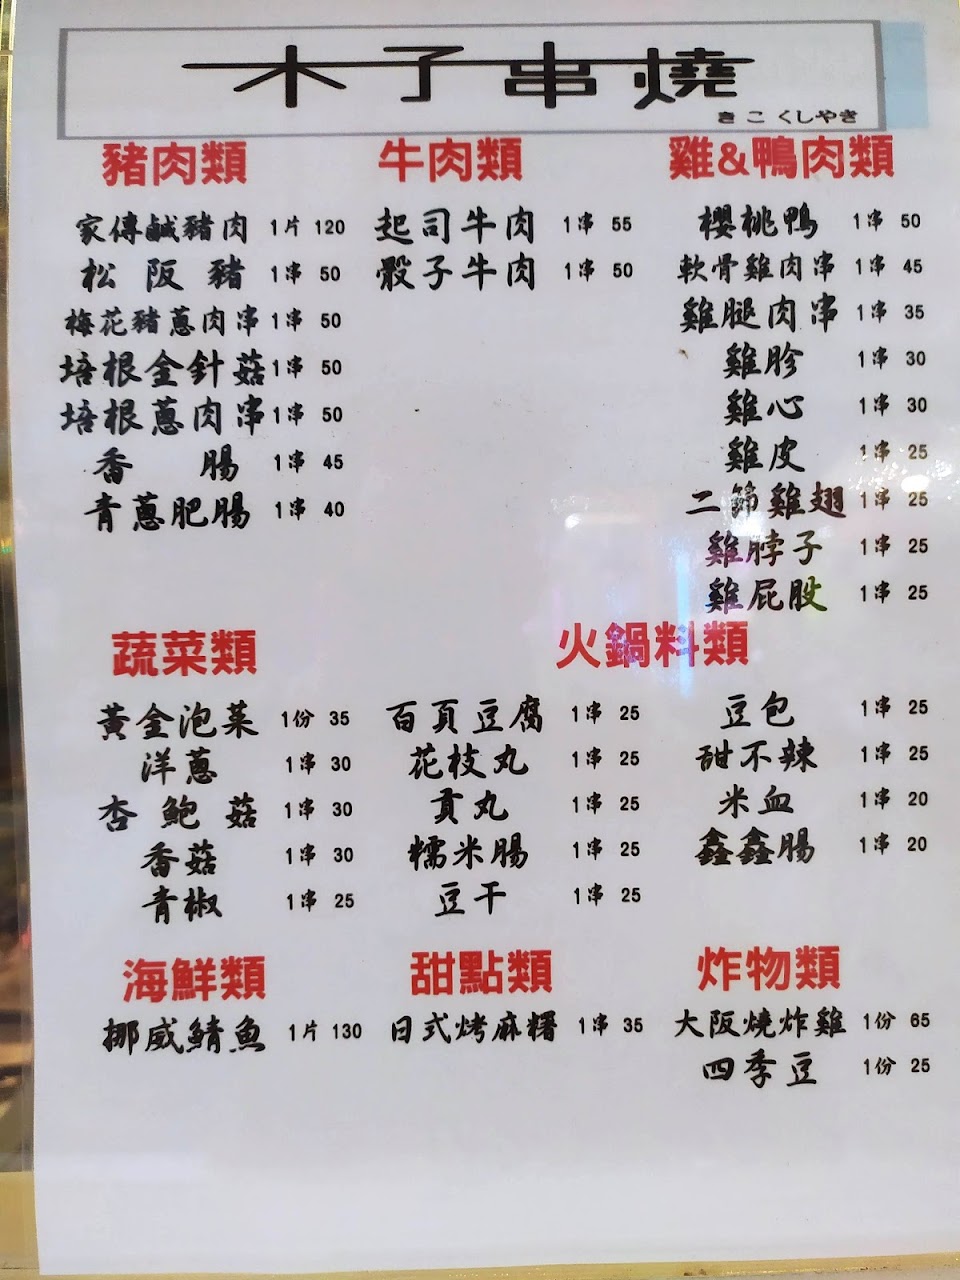 木子串燒
きこくしやき
豬肉類
家傳鹹豬肉 1片 120
松阪豬 1串 50
梅花豬蔥肉串 1串 50
培根金針菇 1串 50
培根蔥肉串 1串 50
香腸 1串 45
青蔥肥腸 1串 40
牛肉類
起司牛肉 1串 55
骰子牛肉 1串 50
雞&鴨肉類
櫻桃鴨 1串 50
軟骨雞肉串 1串 45
雞腿肉串 1串 35
雞胗 1串 30
雞心 1串 30
雞皮 1串 25
二節雞翅 1串 25
雞脖子 1串 25
雞屁股 1串 25
蔬菜類
黃金泡菜 1份 35
洋蔥 1串 30
杏鮑菇 1串 30
香菇 1串 30
青椒 1串 25
火鍋料類
百頁豆腐 1串 25
花枝丸 1串 25
貢丸 1串 25
糯米腸 1串 25
豆干 1串 25
豆包 1串 25
甜不辣 1串 25
米血 1串 20
鑫鑫腸 1串 20
海鮮類
挪威鯖魚 1片 130
甜點類
日式烤麻糬 1串 35
炸物類
大阪燒炸雞 1份 65
四季豆 1份 25